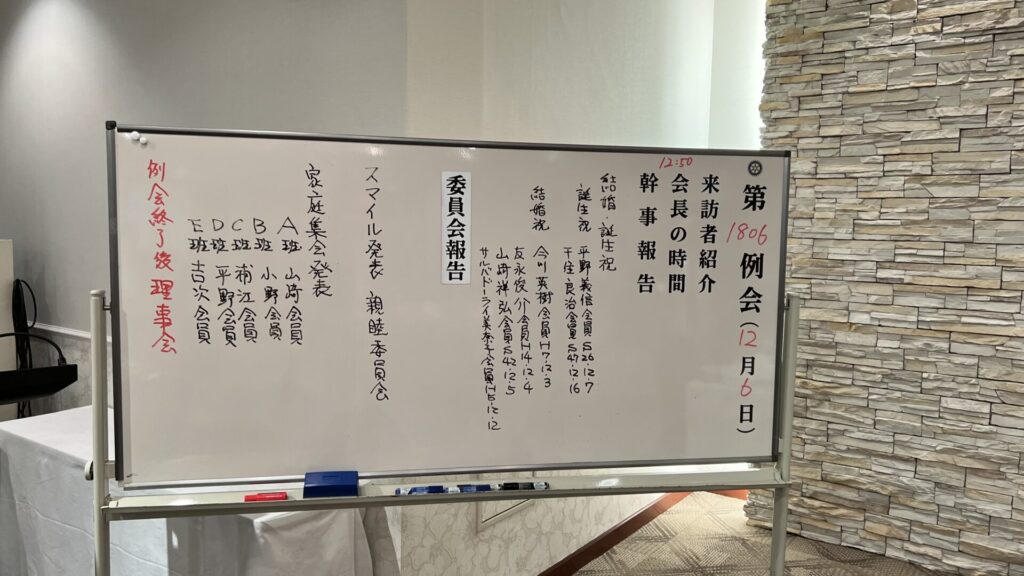 第1806例会(12月6日)
来訪者紹介
12:50
会長の時間
幹事報告
結婚・誕生祝
誕生祝 平野義信会員S26・12・7
千住良治会員S47・12・16
結婚祝 今川英樹会員H7・12・3
友永俊介会員H14・12・4
山崎祥弘会員S42・12・5
サルバドーライ美奈子会員H5・12・12
委員会報告
スマイル発表 親睦委員会
家庭集会発表
A班 山崎会員
B班 小野会員
C班 浦江会員
D班 平野会員
E班 吉次会員
例会終了後理事会